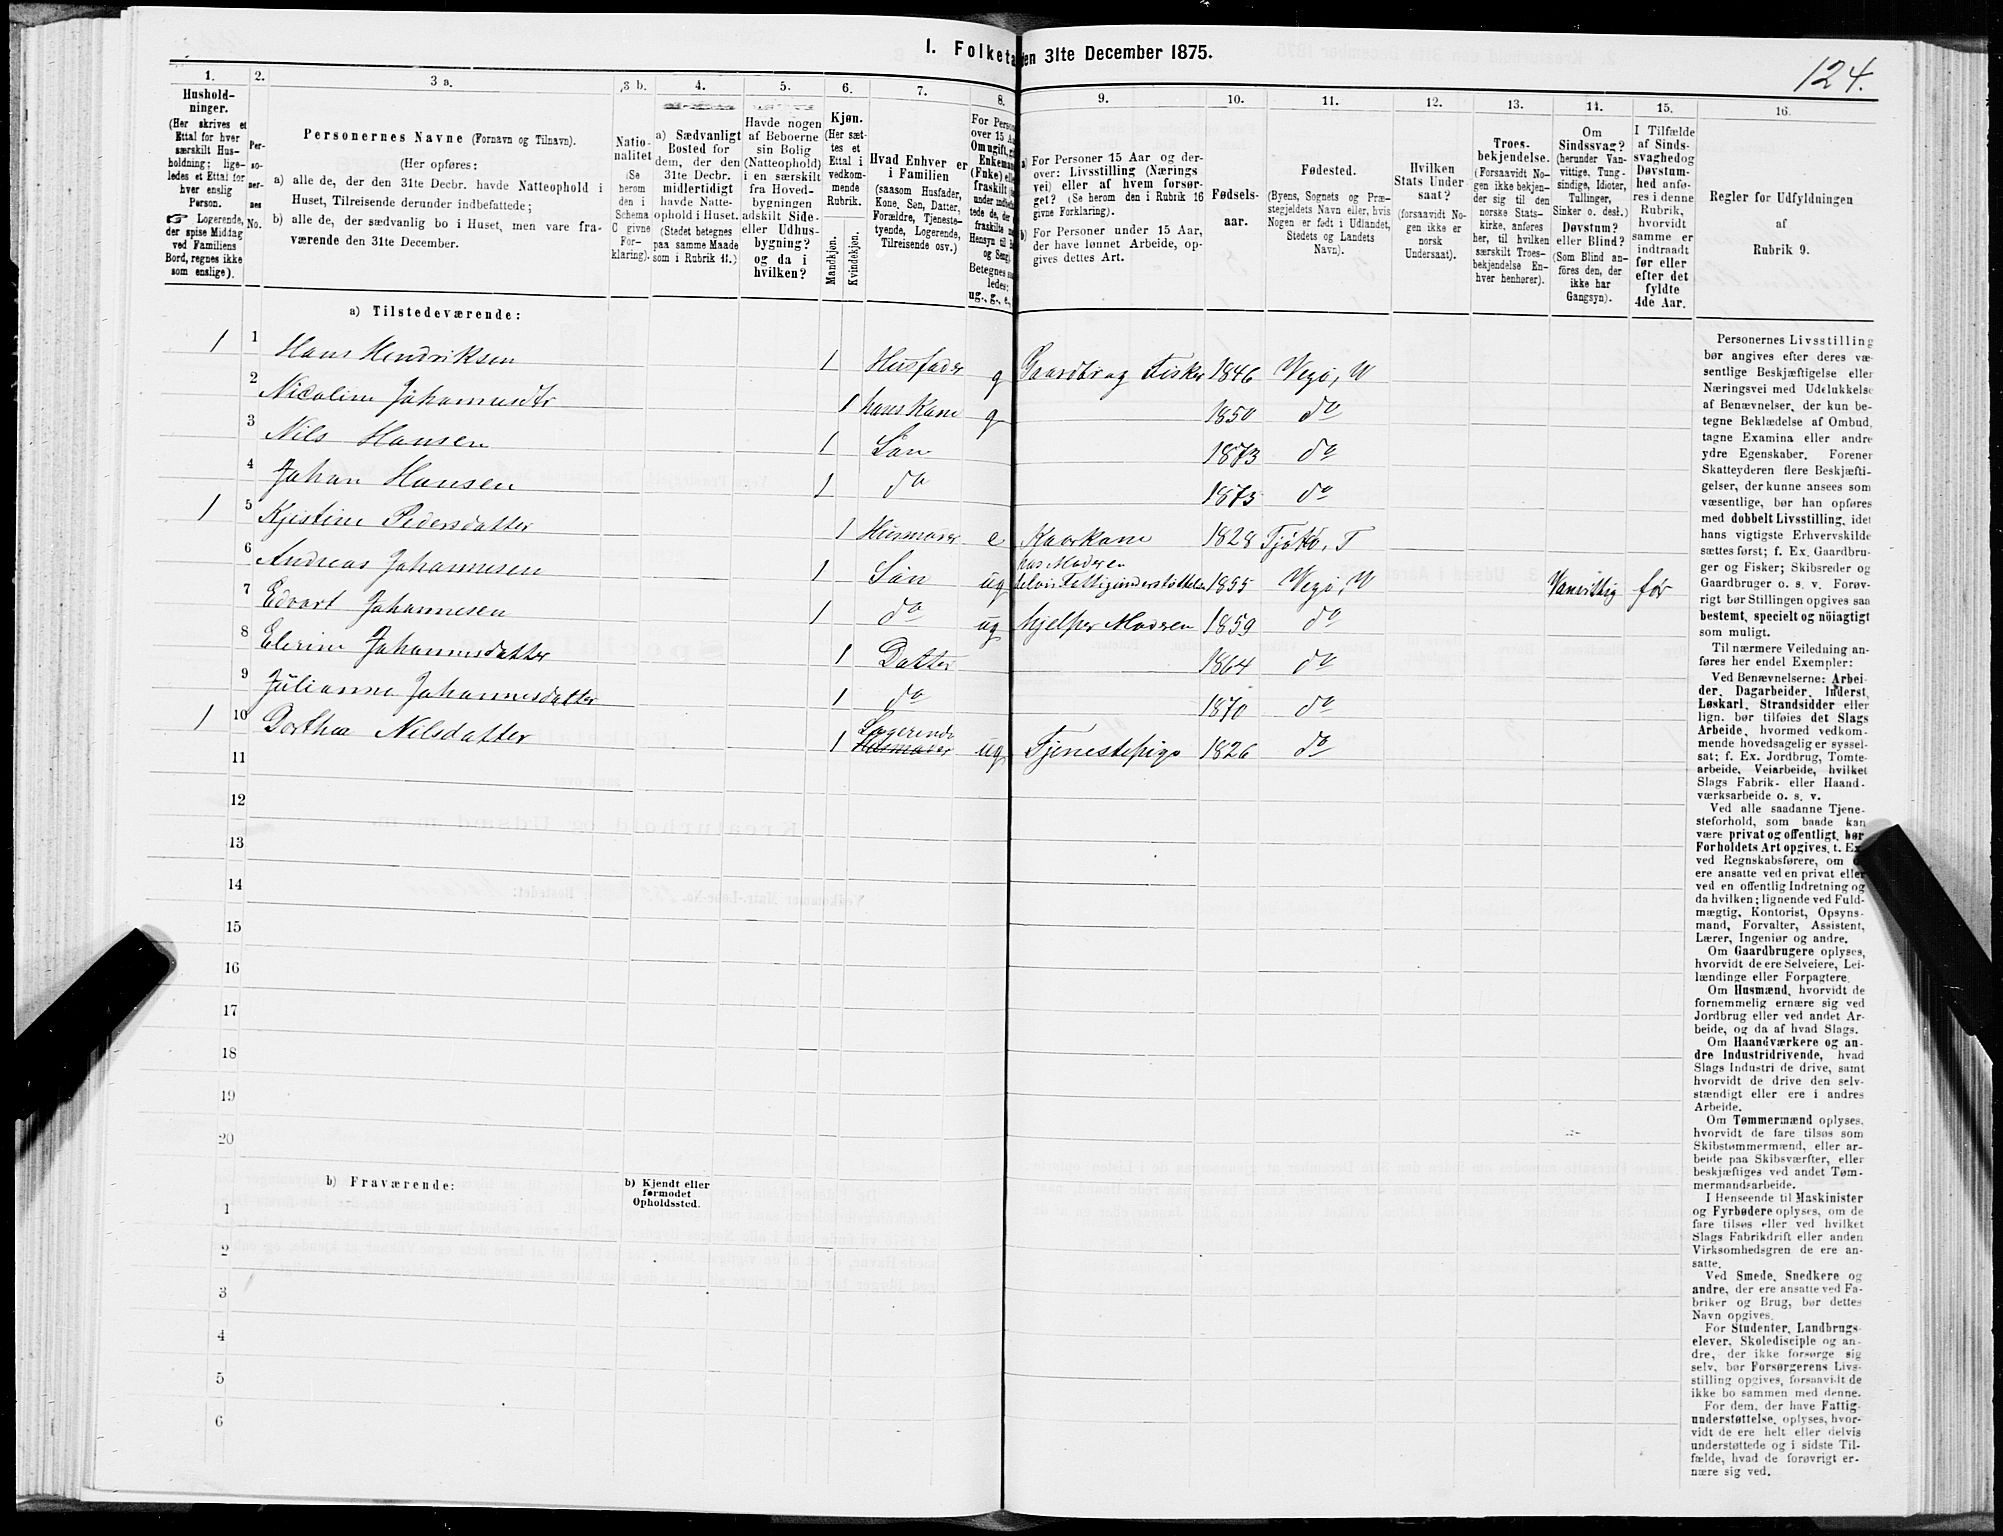 I. Folketa
en 31te December 1875.
124.
1.
Hushold-
ninger.
(Her skrives et
Ettal for hver
særskilt Hus-
holdning; lige-
ledes et Ettal for
hver enslig
Person.
☞ Logerende,
der spise Middag
ved Familiens
Bord, regnes ikke
som enslige).
2.
Per-
so-
ner-
nes
No.
3 a.
Personernes Navne (Fornavn og Tilnavn).
(Her opføres:
a) alle de, der den 31te Decbr. havde Natteophold i
Huset, Tilreisende derunder indbefattede;
b) alle de, der sædvanlig bo i Huset, men vare fra-
værende den 31te December.
3 b.
Natio-
nalitet
(Se
herom
den i
Schema
C givne
For-
klaring).
4.
a) Sædvanligt
Bosted for
dem, der den
31te Decbr.
midlertidigt
havde Natte-
ophold i Huset.
(Stedet betegnes
paa samme Maade
som i Rubrik 11.)
5.
Havde nogen
af Beboerne
sin Bolig
(Natteophold)
i en særskilt
fra Hoved-
bygningen
adskilt Side-
eller Udhus-
bygning?
og da i
hvilken?
6.
Kjøn.
(Her sæt-
tes et
Ettal i
vedkom-
mende
Rubrik.
Mandkjøn.
Kvindekjøn.
7.
Hvad Enhver er
i Familien
(saasom Husfader,
Kone, Søn, Datter,
Forældre, Tjeneste-
tyende, Logerende,
Tilreisende osv.)
8.
For Person
over 15 Aa
Om ugift, gi
Enkeman
(Enke) elle
fraskilt
Betegnes saa
ledes:
ug., g., e.,
9.
a) For Personer 15 Aar og der-
over: Livsstilling (Nærings
vei) eller af hvem forsør-
get? (Se herom den i Rubrik 16
givne Forklaring).
b) For Personer under 15 Aar,
der have lønnet Arbeide, op-
gives dettes Art.
10.
Fødsels-
aar.
11.
Fødested.
(Byens, Sognets og Præ-
stegjeldets Navn eller, hvis
Nogen er født i Udlandet,
Stedets og Landets
Navn).
12.
Hvilken
Stats Under-
saat?
(forsaavidt No-
gen ikke er
norsk
Undersaat).
13.
Troes-
bekjendelse.
(Forsaavidt No-
gen ikke bekjen-
der sig til den
norske Stats-
kirke, anføres
her, til hvilken
særskilt Troes-
bekjendelse En-
hver henhører).
14.
Om
Sindssvag?
(herunder Van-
vittige, Idioter,
Tullinger,
Sinker o. desl.)
Døvstum?
eller Blind?
(Som Blind an-
føres den, der
ikke har
Gangsyn).
15.
I Tilfælde
af Sinds-
svaghed og
Døvstum-
hed anfø-
res i denne
Rubrik,
hvorvidt
samme er
indtraadt
før eller
efter det
fyldte
4de Aar.
16.
Regler for Udfyldningen
af
Rubrik 9.
a) Tilstedeværende:
1 1 Hans Hendriksen 1 Husfader g Gaardbr og Fisker 1846 Vegø, V
2 Nicoline Johannesdtr 1 hans Kone g 1850 do
3 Nils Hansen 1 Søn 1873 do
4 Johan Hansen 1 do 1875 do
1 5 Kjistine Pedersdatter 1 Husmoder e Kaarkone 1828 Tjøttø, T
hos Moderen
6 Andreas Johannesen 1 Søn ug delvis Fattigunderstøttelse 1855 Vegø, V Vanvittig før
7 Edvart Johannesen 1 do ug hjelper Moderen 1859 do
8 Elerine Johannesdatter 1 Datter 1864 do
9 Julianne Johannesdatter 1 do 1870 do
Logerende
1 10 Dorthea Nilsdatter 1 Husmoder ug Tjenestepige 1826 do
11
12
13
14
15
16
17
18
19
20
b) Fraværende:
b) Kjendt eller
formodet
Opholdssted.
1
2
3
4
5
6
Personernes Livsstilling
bør angives efter deres væ-
sentlige Beskjæftigelse eller
Næringsvei med Udelukkelse
af Benævnelser, der kun be-
tegne Beklædelse af Ombud,
tagne Examina eller andre
ydre Egenskaber. Forener
Skatteyderen flere Beskjæfti-
gelser, der kunne ansees som
væsentlige, bør han opføres
med dobbelt Livsstilling, idet
hans vigtigste Erhvervskilde
sættes først; f. Ex. Gaardbru-
ger og Fisker; Skibsreder og
Gaardbruger o. s. v. Forøv-
rigt bør Stillingen opgives saa
bestemt, specielt og nöiagtigt
som muligt.
Til nærmere Veiledning an-
føres her endel Exempler:
Ved Benævnelserne: Arbei-
der, Dagarbeider, Inderst,
Løskarl, Strandsidder eller
lign. bør tilføies det Slags
Arbeide, hvormed vedkom-
mende hovedsagelig er syssel-
sat; f. Ex. Jordbrug, Tomte-
arbeide, Veiarbeide, hvilket
Slags Fabrik- eller Haand-
værksarbeide o. s. v.
Ved alle saadanne Tjene-
steforhold, som baade kan
være privat og offentligt, bør
Forholdets Art opgives, t. Ex.
ved Regnskabsførere, om
ere ansatte ved en privat eller
ved en offentlig Indretning og
da hvilken; lignende ved Fuld-
mægtig, Kontorist, Opsyns-
mand, Forvalter, Assistent,
Lærer, Ingeniør og andre.
Om Gaardbrugere oplyses,
hvorvidt de ere Selveiere, Lei-
lændinge eller Forpagtere.
Om Husmænd, hvorvidt de
fornemmelig ernære sig ved
Jordbrug eller ved andet Ar-
beide, og da af hvad Slags.
Om Haandværkere og an-
dre Industridrivende, hvad
Slags Industri de drive, samt
hvorvidt de drive den selv-
stændigt eller ere i andres
Arbeide.
Om Tømmermænd oplyses,
hvorvidt de fare tilsøs som
Skibstømmermænd, eller ar-
beide paa Skibsværfter, eller
beskjæftiges ved andet Tøm-
mermandsarbeide.
I Henseende til Maskinister
og Fyrbødere oplyses, om de
fare tilsøs eller ved hvilket
Slags Fabrikdrift eller anden
Virksomhedsgren de ere an-
satte.
Ved Smede, Snedkere og
andre, der ere ansatte ved Fa-
briker og Brug, bør dettes
Navn opgives.
For Studenter, Landbrugs-
elever, Skoledisciple og an-
dre, der ikke forsørge sig
selv, bør Forsørgerens Livs-
stilling opgives, forsaavidt de
ikke bo sammen med denne.
For dem, der have Fattig-
understøttelse, oplyses, hvor-
vidt de ere helt eller delvis
understøttede og i sidste Til-
fælde, hvad de forøvrigt er-
nære sig ved.